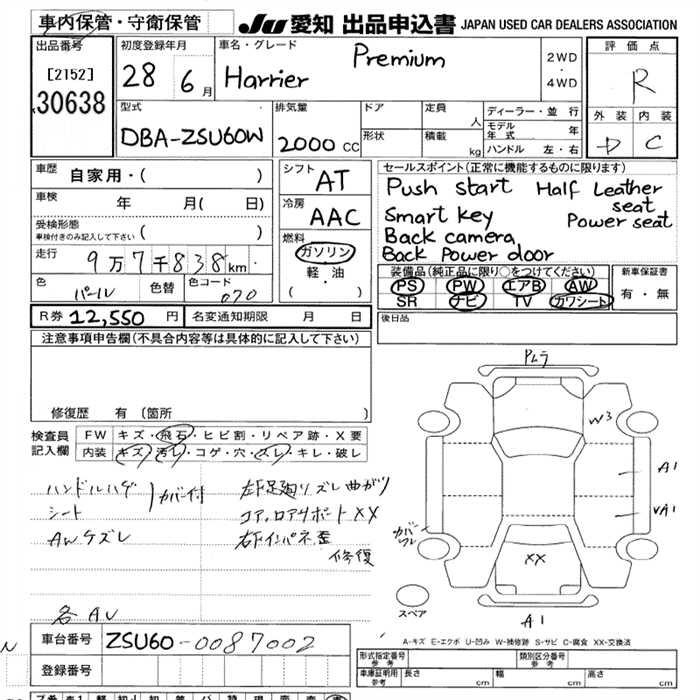 車内保管・守衛保管
JU 愛知 出品申込書 JAPAN USED CAR DEALERS ASSOCIATION
出品番号
[2152]
30638
初度登録年月
28 6月
車名・グレード
Harrier Premium
2WD
・
4WD
評価点
R
外装 内装
D C
型式
DBA-ZSU60W
排気量
2000 CC
ドア
形状
定員
人
積載
kg
ディーラー・並行
モデル年式 年
ハンドル 左・右
車歴
自家用・( )
車検
年 月( 日)
受検形態
車検付きのみ記入して下さい
( )
走行
9万7千838km
色
パール
色替
色コード
070
シフト
AT
冷房
AAC
燃料
ガソリン
・
軽・油
( ・ )
セールスポイント(正常に機能するものに限ります)
Push start Half Leather
seat
Smart key Power seat
Back camera
Back Power door
装備品(純正品に限り○をつけてください)
PS PW エアB AW
SR ナビ TV カワシート
新車保証書
有・無
R券 12,550円
名変通知期限 月 日
後日品
注意事項申告欄(不具合内容等は具体的に記入して下さい)
修復歴 有(箇所 )
検査員
記入欄
FW キズ・飛石・ヒビ割・リペア跡・X要
内装 キズ・汚レ・コゲ・穴・スレ・キレ・破レ
ハンドルハゲ
シート
カバー付
AWケズレ
左下足廻りズレ曲がり
コア,ロアサポートXX
右下インパネ歪
修復
各AU
プムラ
W3
A1
VA1
カバー
ワレ
XX
A1
スペア
A-キズ E-エクボ U-凹み W-補修跡 S-サビ C-腐食 XX-交換済
車台番号
ZSU60-0087002
登録番号
形式指定番号
参考
類別区分番号
参考
車庫証明用
参考
長さ cm 幅 cm 高さ cm
N